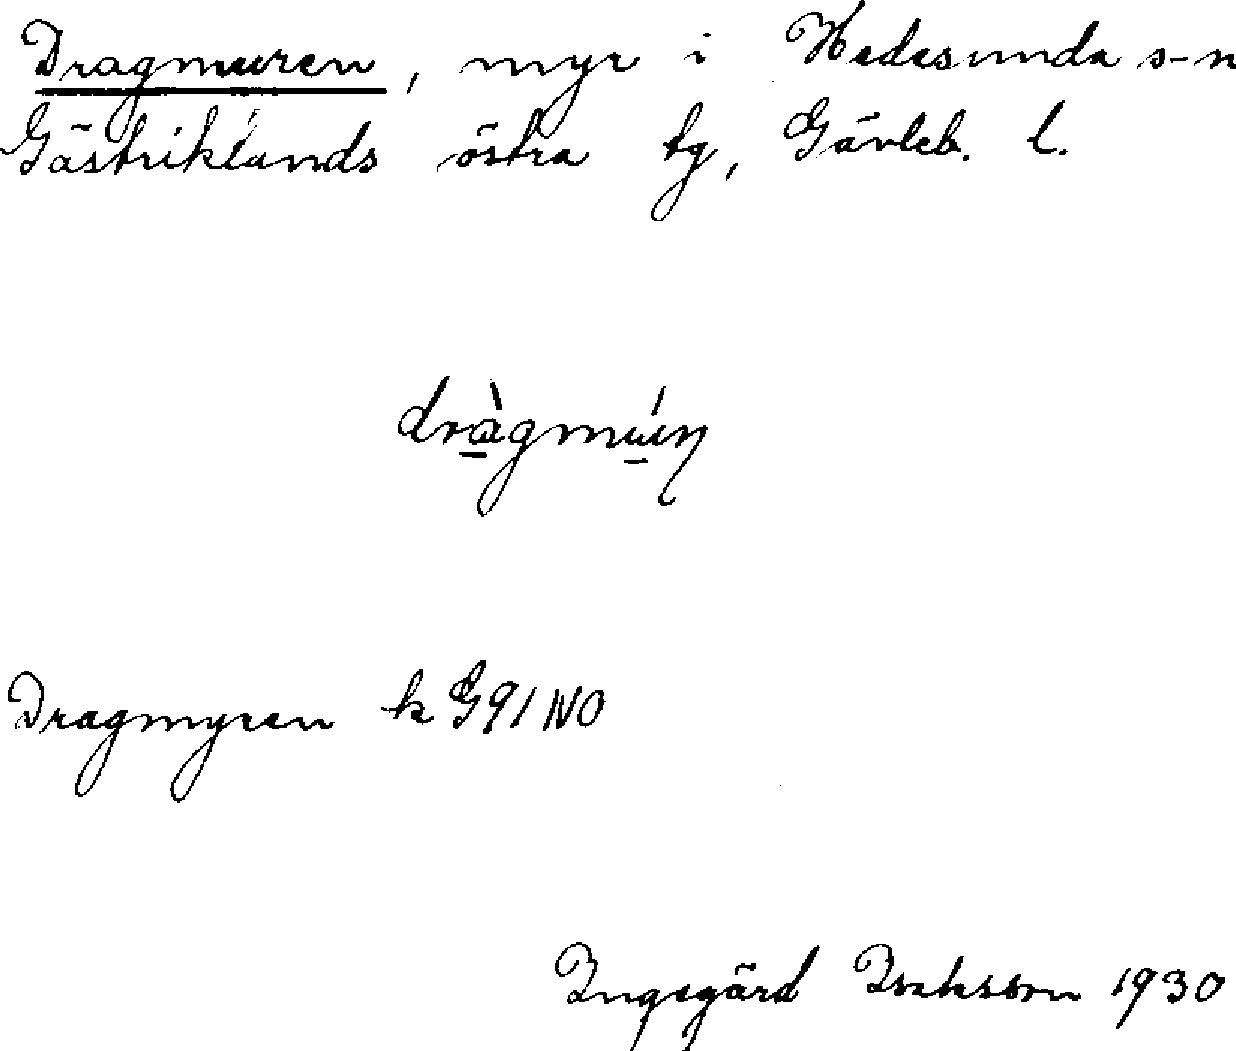 Dragmuren, myr i Hedesunda s-n
Gästriklands östra tg, Gävleb. l.
dràgmúɪn̥
Dragmyren k G91 NO
Ingegärd Isaksson 1930